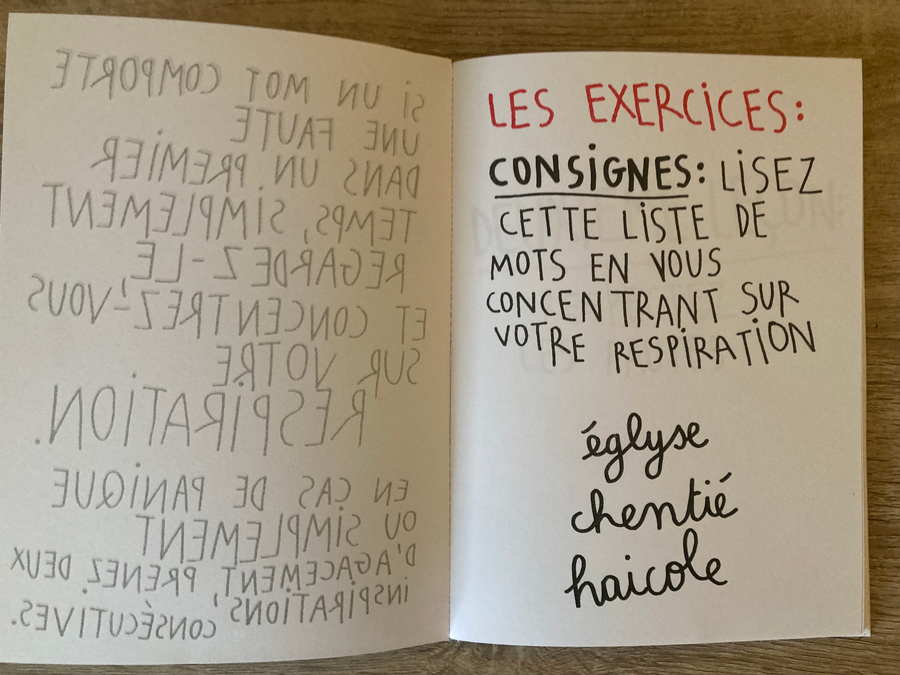 SI UN MOT COMPORTE
UNE FAUTE
DANS UN PREMIER
TEMPS, SIMPLEMENT
REGARDEZ-LE,
ET CONCENTREZ-VOUS
SUR VOTRE
RESPIRATION.
EN CAS DE PANIQUE
OU SIMPLEMENT
D'AGACEMENT, PRENEZ DEUX
INSPIRATIONS CONSÉCUTIVES.
LES EXERCICES:
CONSIGNES: LISEZ
CETTE LISTE DE
MOTS EN VOUS
CONCENTRANT SUR
VOTRE RESPIRATION
églyse
chentié
haicole